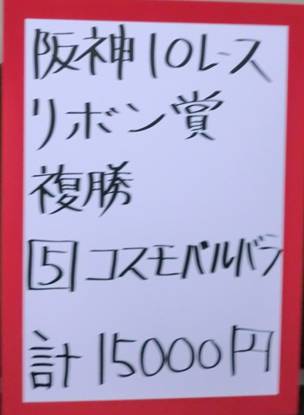 阪神10レース
リボン賞
複勝
5 コスモバルバラ
計15000円